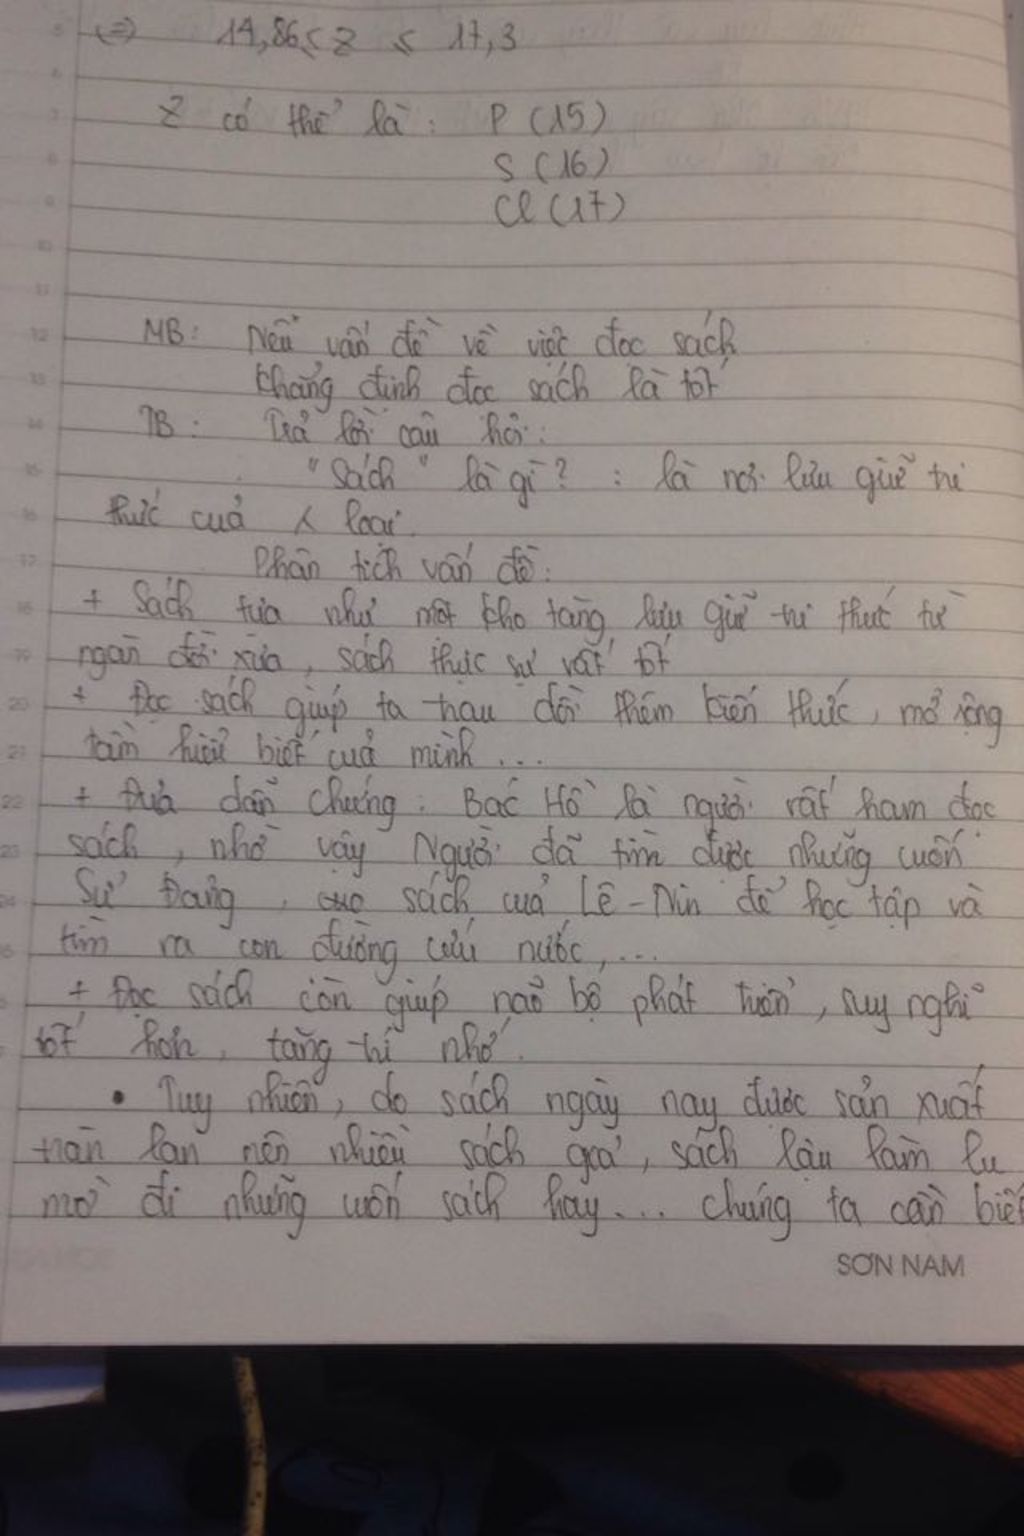 (=) 14,86 ≤ Z ≤ 17,3
Z có thể là : P (15)
S (16)
Cl (17)
MB: Nêu vấn đề về việc đọc sách
khẳng định đọc sách là tốt
TB: Trả lời câu hỏi:
"Sách" là gì? : là nơi lưu giữ tri
thức của loại.
Phân tích vấn đề:
+ Sách tựa như một kho tàng lưu giữ tri thức từ
ngàn đời xưa, sách thực sự rất tốt
+ Đọc sách giúp ta trau dồi thêm kiến thức, mở rộng
tầm hiểu biết của mình ...
+ Đưa dẫn chứng: Bác Hồ là người rất ham đọc
sách, nhờ vậy Người đã tìm được những cuốn
Sử Đảng, sách của Lê-Nin để học tập và
tìm ra con đường cứu nước,...
+ Đọc sách còn giúp não bộ phát triển, suy nghĩ
tốt hơn, tăng trí nhớ.
• Tuy nhiên, do sách ngày nay được sản xuất
tràn lan nên nhiều sách giả, sách lậu làm lu
mờ đi những cuốn sách hay... chúng ta cần biết
SƠN NAM